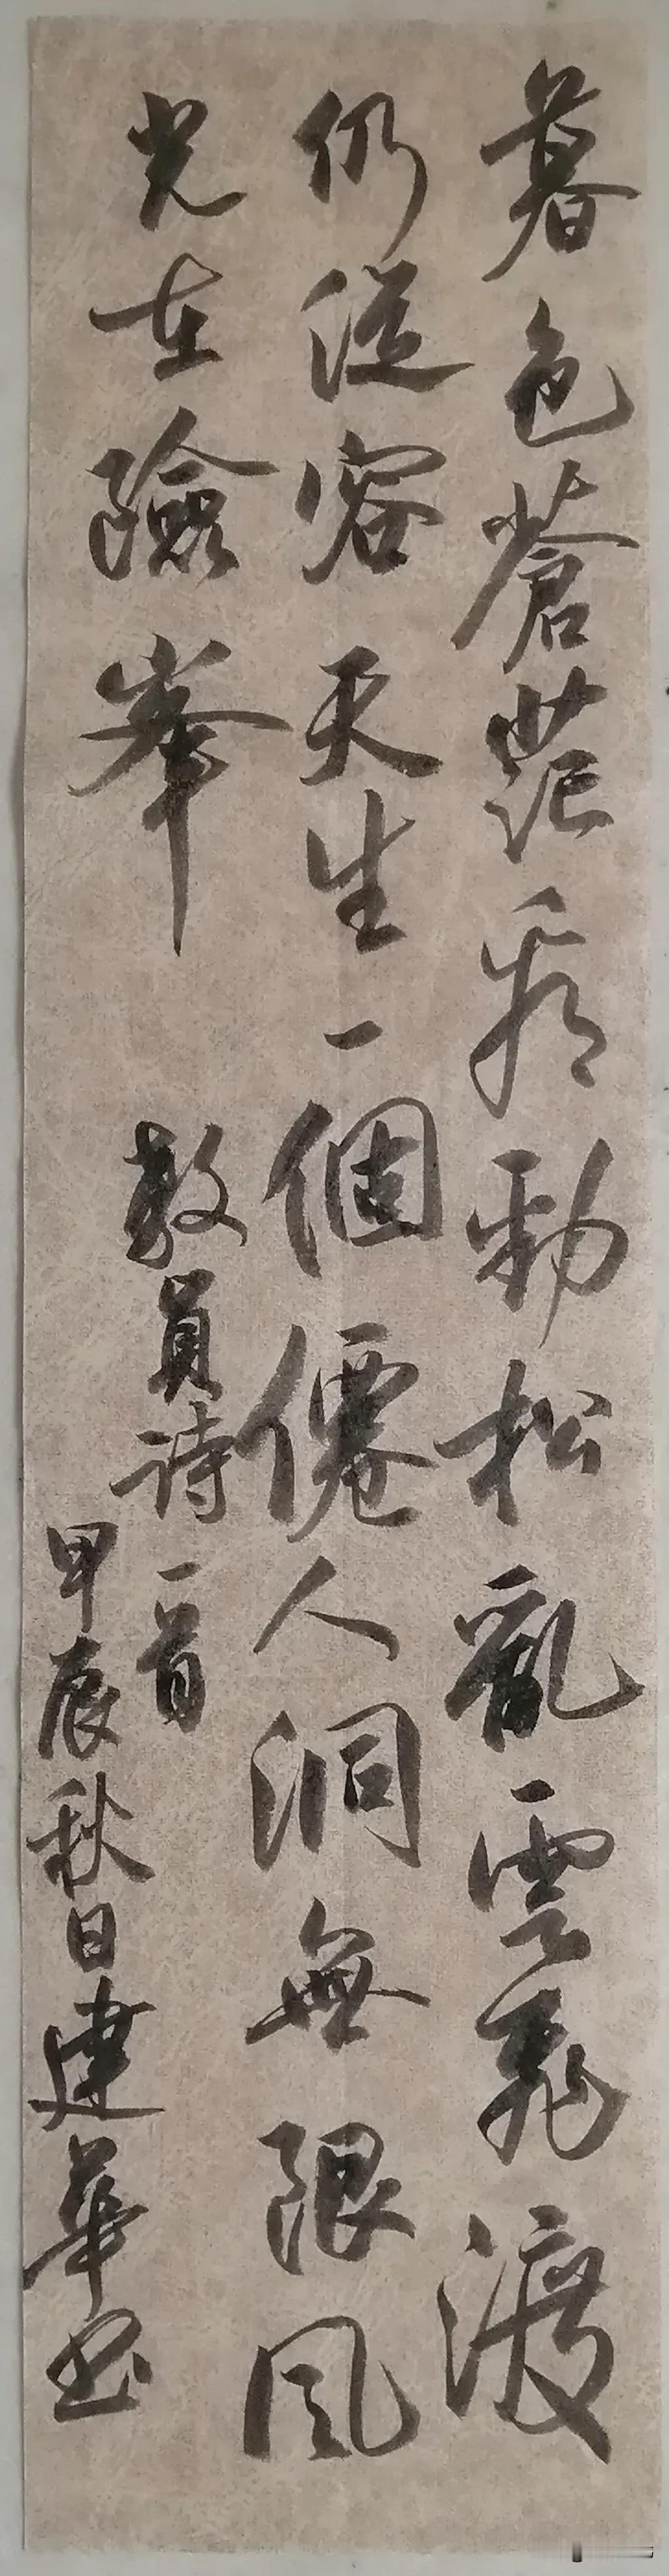 暮色蒼茫看勁松亂雲飛渡
仍從容天生一個僊人洞無限風
光在險峯
教員詩一首
甲辰秋日建華书